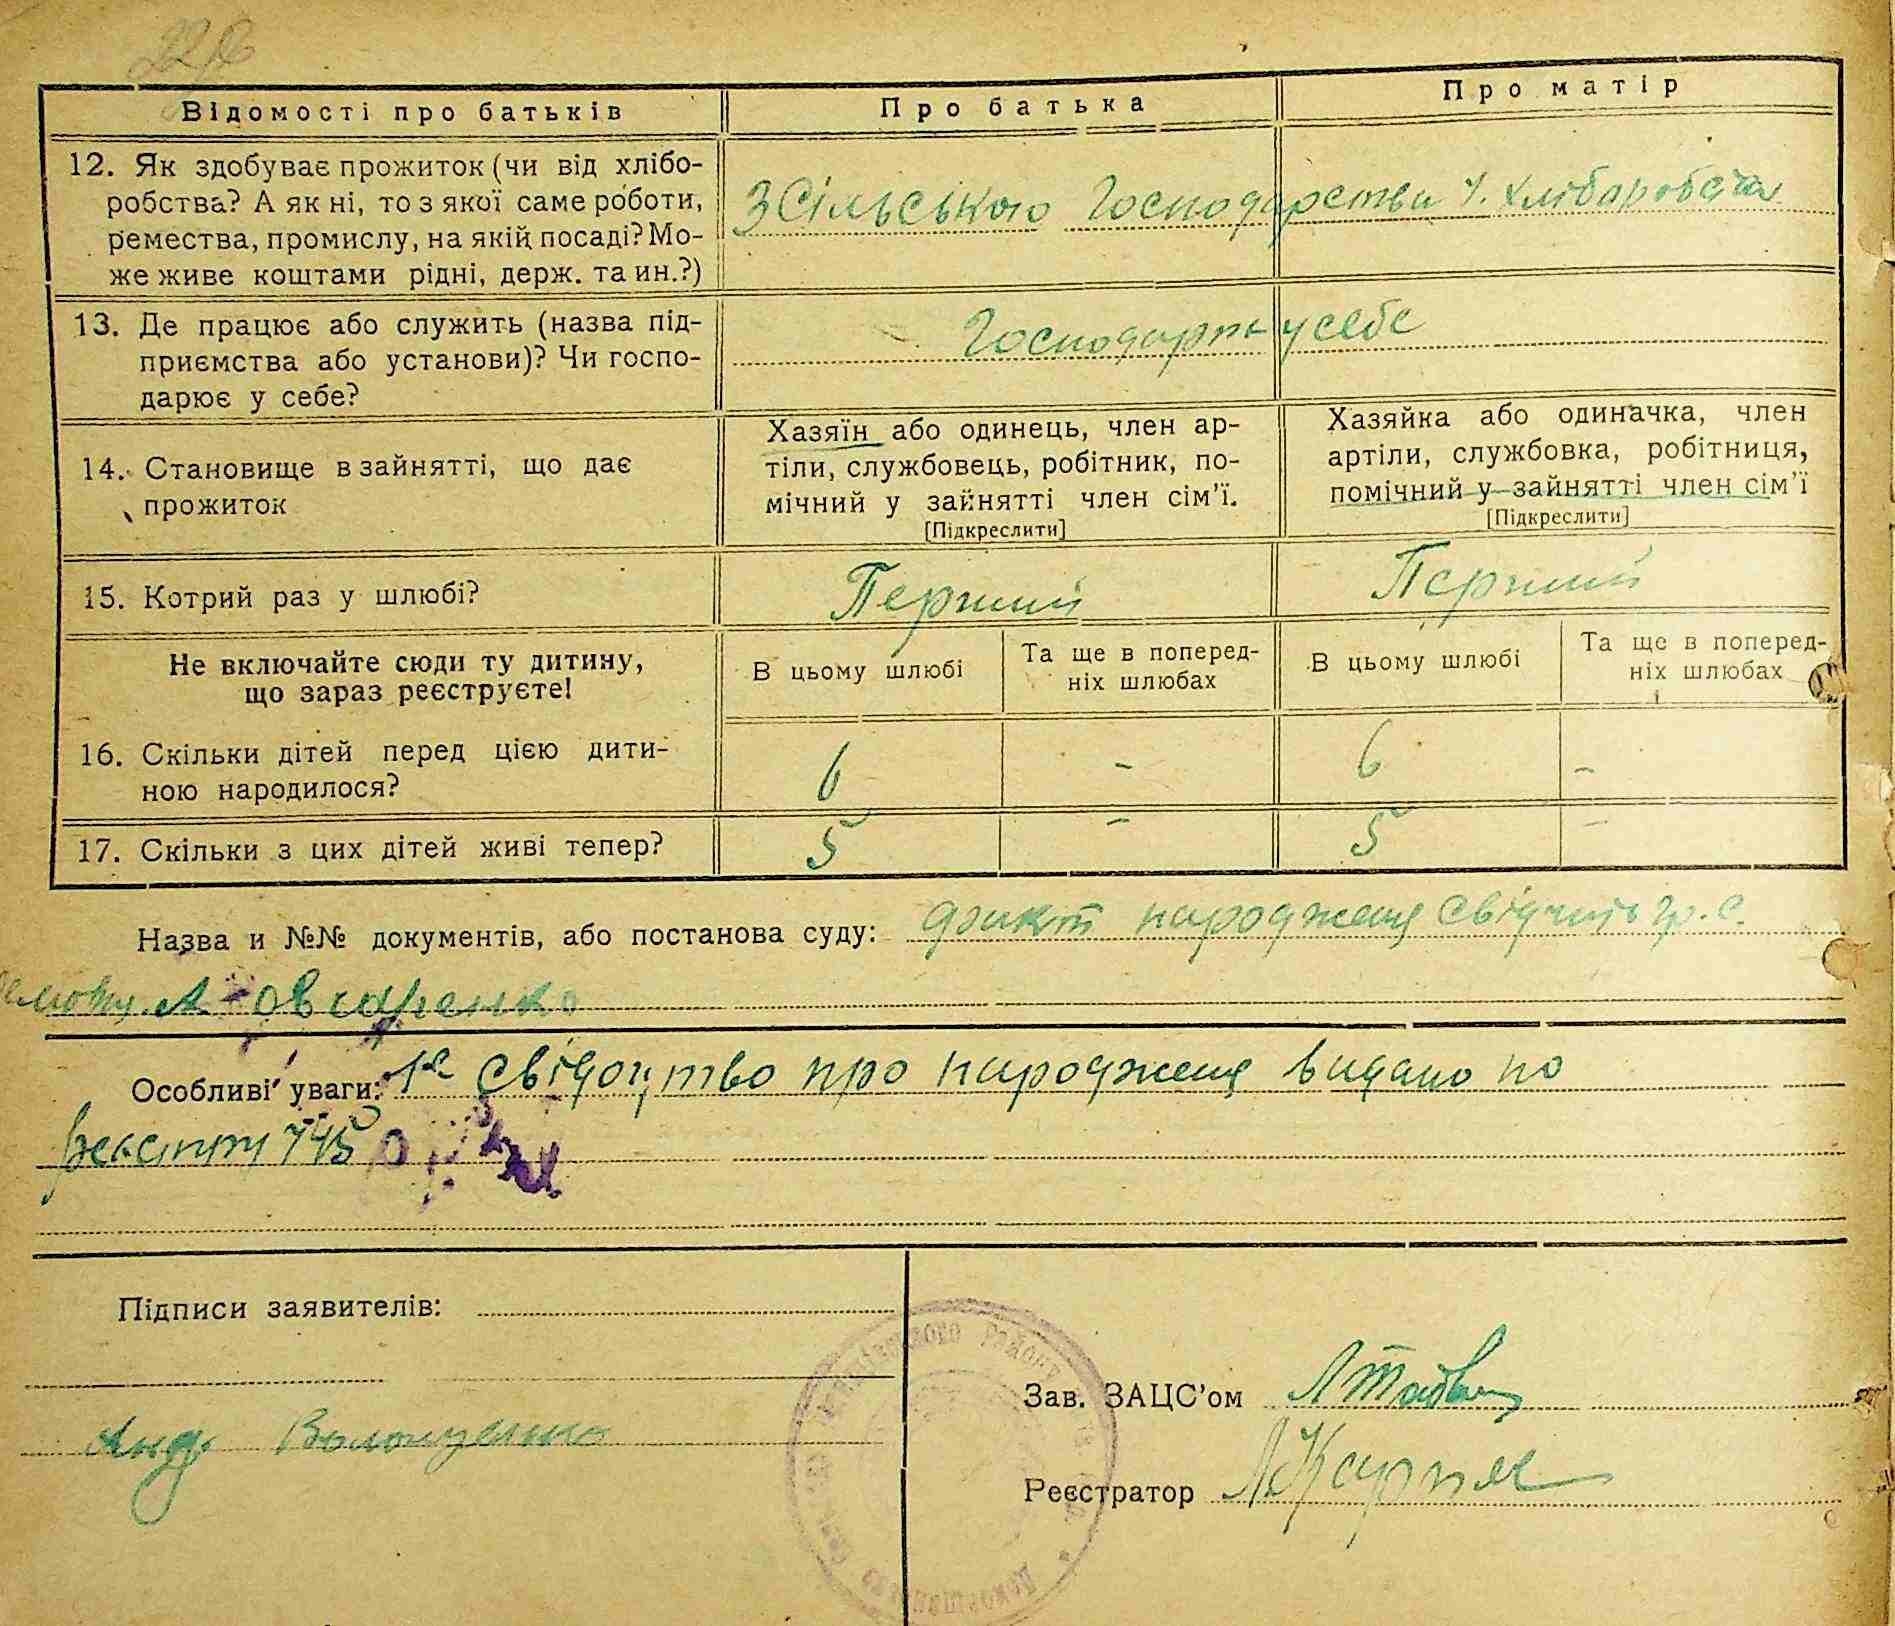 Відомості про батьків
Про батька
Про матір
12. Як здобуває прожиток (чи від хлібо-
робства? А як ні, то з якої саме роботи,
ремества, промислу, на якій посаді? Мо-
же живе коштами рідні, держ. та ин.?)
З Сільського Господарства
13. Де працює або служить (назва під-
приємства або установи)? Чи госпо-
дарює у себе?
у себе
14. Становище в зайнятті, що дає
прожиток
Хазяїн або одинець, член ар-
тіли, службовець, робітник, по-
мічний у зайнятті член сім’ї.
[Підкреслити]
Хазяйка або одиначка, член
артіли, службовка, робітниця,
помічний у зайнятті член сім’ї
[Підкреслити]
15. Котрий раз у шлюбі?
Перший
Перший
Не включайте сюди ту дитину,
що зараз реєструєте!
В цьому шлюбі
Та ще в поперед-
ніх шлюбах
В цьому шлюбі
Та ще в поперед-
ніх шлюбах
16. Скільки дітей перед цією дити-
ною народилося?
6
-
6
-
17. Скільки з цих дітей живі тепер?
5
-
5
-
Назва и №№ документів, або постанова суду: факт народженя свідчить гр. с.
А. Овчаренко
Особливі уваги: свідоцтво про народженя видано по
745
Підписи заявителів:
Анд.
Зав. ЗАЦС’ом
Реєстратор